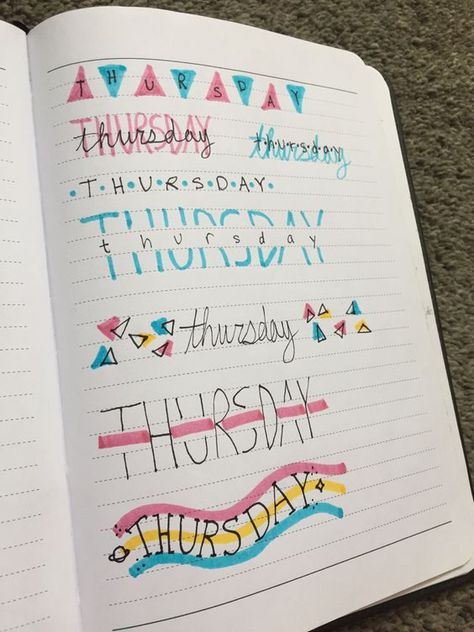 THURSDAY
THURSDAY thursday thursday t·h·u·r·s·d·a·y
·T·H·U·R·S·D·A·Y·
THURSDAY thursday
thursday
THURSDAY
THURSDAY